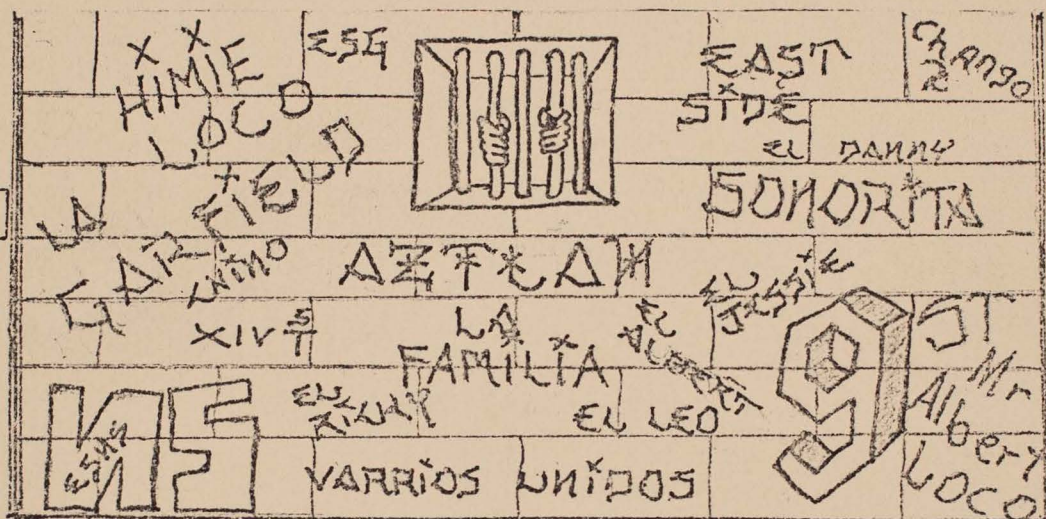 X X
HIMIE
LOCO
ESG
EAST
SIDE
Chango
R
EL DANNY
SONORITA
LA
GARFIELD
L NIÑO
AZTLAN
XIV ST
LA
FAMILIA
EL
ALBERT
EL
JESSIE
9
ST
Mr
Albert
LOCO
NE
ESUS
EL LEO
VARRIOS UNIDOS